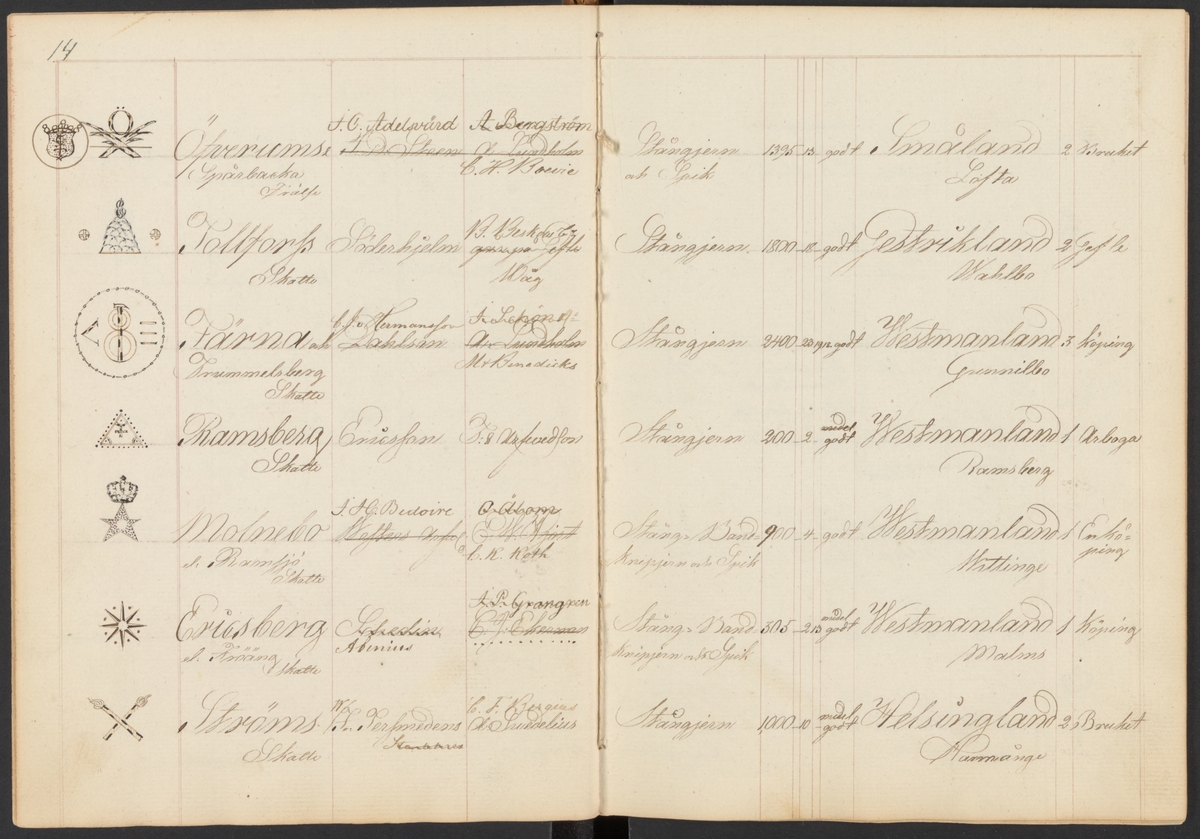 14
Ö
Öfverums
Spårbacka
Frälse
J. C. Adelsvärd
A. Bergström
A. Lundholm
C. H. Boevie
Stångjern
och Spik
1395 13 godt
Småland
Löfta
2 Bruket
Tolforss
Skatte
Söderhjelm
Wåg
Stångjern
1800 18 godt
Gestrikland
Wahlbo
2 Gefle
Färna och
Trummelsberg
Skatte
Hermansson
Dahlson
J. Schön
A. Lundholm
M. Benedicks
Stångjern
2400 godt
Westmanland
Gunnilbo
3 Köping
Ramsberg
Skatte
Ericsson
Arfvedson
Stångjern
200 2 medel godt
Westmanland
Ramsberg
1 Arboga
Molnebo
o. Ramsjö
Skatte
Bedoire
O. Åbom
C. R. Roth
Stång- Band-
Knipjern och Spik
900 4 godt
Westmanland
Wittinge
1 Enkö=
ping
Ericsberg
Skatte
Schedin
Abenius
A. P. Grangren
C. J. Ekman
Stång- Band
Knipjern och Spik
305 2 13 medel godt
Westmanland
Malms
1 Köping
Ströms
Skatte
C. F. Bergius
A. Sundelius
Stångjern
1000 10 medel godt
Helsingland
Harmånge
2 Bruket